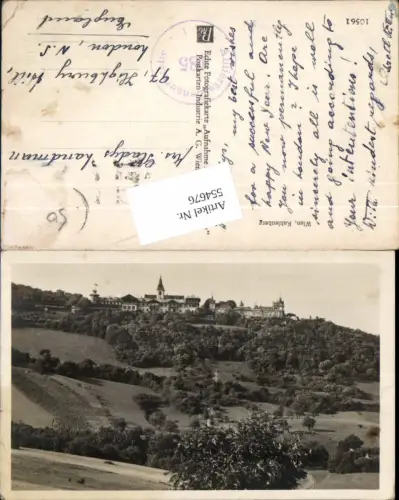 10561
my best wishes
for a successful and
happy New Year. Are
you now permanently
in London? I hope
sincerely all is well
and going according to
your intentions!
With kindest regards,
Wien, Kahlenberg
Echte Fotografiekarte „Aufnahme
Postkarten-Industrie A. G. Wien
Artikel Nr.
554676
Mrs. Gladys Landman
97, Highbury Hill,
London, N.5.
England
50